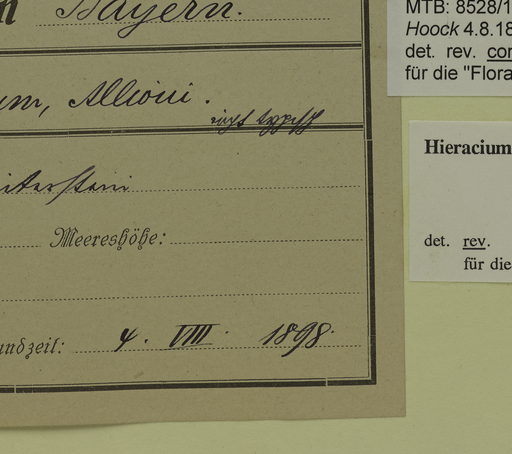 n Bayern.
um, Allioni.
nicht typisch
Meereshöhe:
undzeit: 4. VIII. 1898.
MTB: 8528/1
Hoock 4.8.18
det. rev. con
für die "Flora
Hieracium
det. rev.
für die